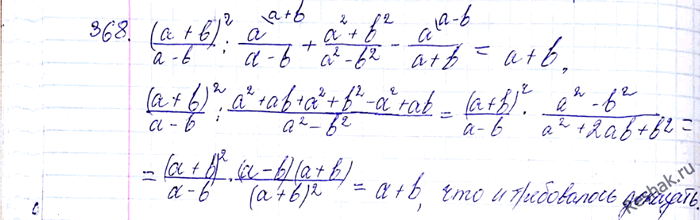 368. (a + b)² / (a - b) : a^(a+b) / (a - b) + (a² + b²) / (a² - b²) - a^(a-b) / (a + b) = a + b,
(a + b)² / (a - b) : (a² + ab + a² + b² - a² + ab) / (a² - b²) = (a + b)² / (a - b) · (a² - b²) / (a² + 2ab + b²) =
= (a + b)² / (a - b) · (a - b)(a + b) / (a + b)² = a + b, что и требовалось доказать.
reshak.ru